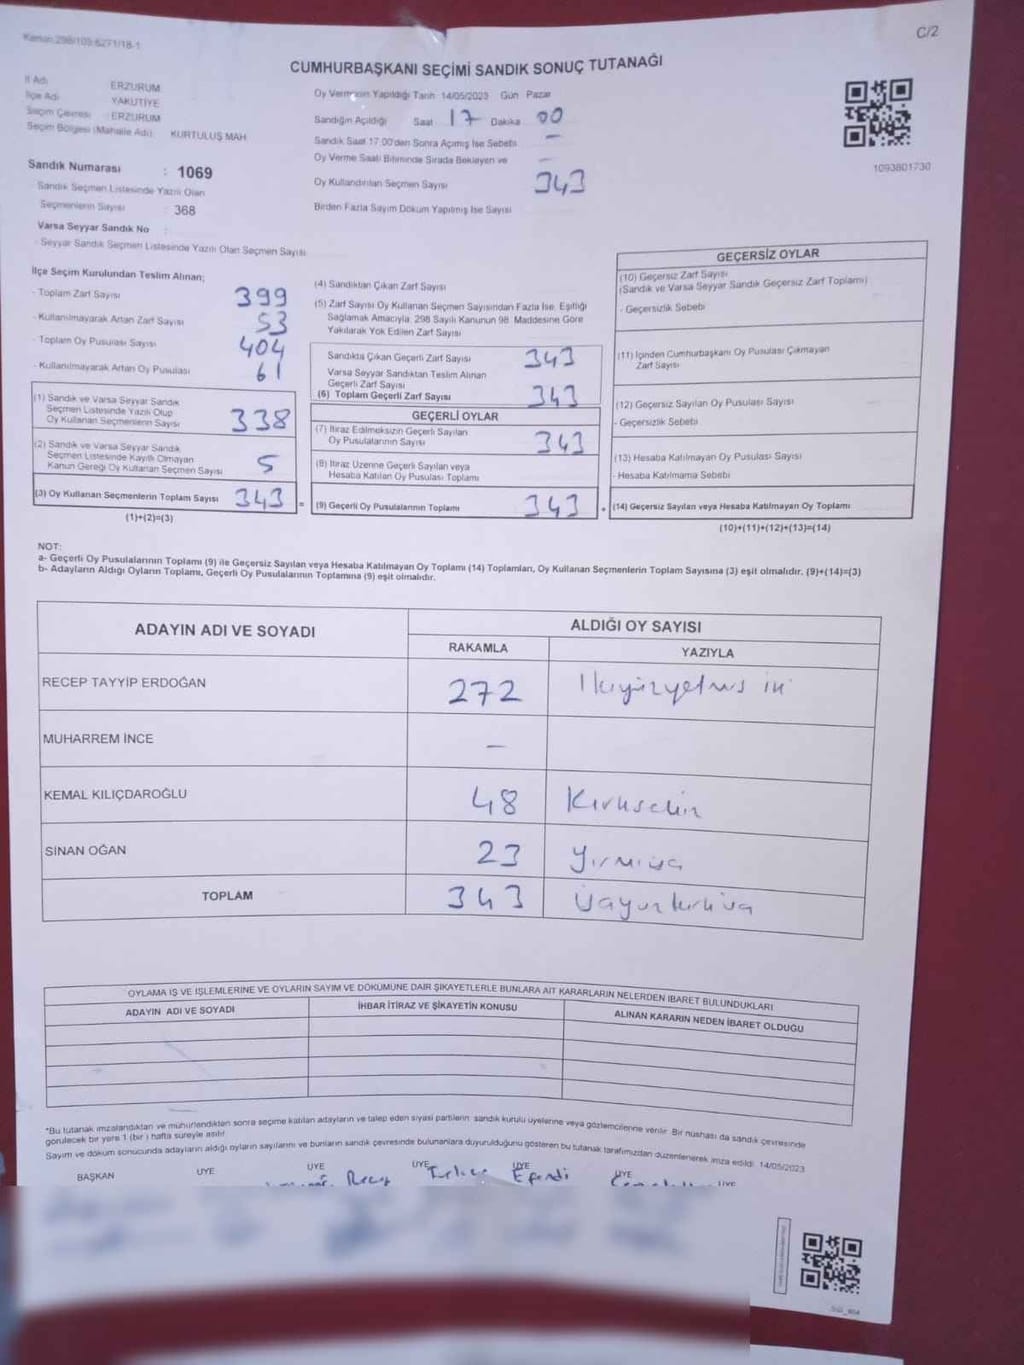 Kanun:298/105-6271/18-1
C/2
CUMHURBAŞKANI SEÇİMİ SANDIK SONUÇ TUTANAĞI
İl Adı : ERZURUM
İlçe Adı : YAKUTİYE
Seçim Çevresi : ERZURUM
Seçim Bölgesi (Mahalle Adı) : KURTULUŞ MAH
Sandık Numarası : 1069
Sandık Seçmen Listesinde Yazılı Olan
Seçmenlerin Sayısı : 368
Varsa Seyyar Sandık No :
- Seyyar Sandık Seçmen Listesinde Yazılı Olan Seçmen Sayısı
Oy Vermenin Yapıldığı Tarih 14/05/2023 Gün Pazar
Sandığın Açıldığı Saat 17 Dakika 00
Sandık Saat 17.00'den Sonra Açımış İse Sebebi —
Oy Verme Saati Bitiminde Sırada Bekleyen ve —
Oy Kullandırılan Seçmen Sayısı 343
Birden Fazla Sayım Döküm Yapılmış İse Sayısı
1093801730
İlçe Seçim Kurulundan Teslim Alınan;
- Toplam Zarf Sayısı 399
- Kullanılmayarak Artan Zarf Sayısı 53
- Toplam Oy Pusulası Sayısı 404
- Kullanılmayarak Artan Oy Pusulası 61
(1) Sandık ve Varsa Seyyar Sandık
Seçmen Listesinde Yazılı Olup
Oy Kullanan Seçmenlerin Sayısı 338
(2) Sandık ve Varsa Seyyar Sandık
Seçmen Listesinde Kayıtlı Olmayan
Kanun Gereği Oy Kullanan Seçmen Sayısı 5
(3) Oy Kullanan Seçmenlerin Toplam Sayısı 343 =
(1)+(2)=(3)
(4) Sandıktan Çıkan Zarf Sayısı
(5) Zarf Sayısı Oy Kullanan Seçmen Sayısından Fazla İse, Eşitliği
Sağlamak Amacıyla, 298 Sayılı Kanunun 98. Maddesine Göre
Yakılarak Yok Edilen Zarf Sayısı
Sandıkta Çıkan Geçerli Zarf Sayısı 343
Varsa Seyyar Sandıktan Teslim Alınan
Geçerli Zarf Sayısı
(6) Toplam Geçerli Zarf Sayısı 343
GEÇERLİ OYLAR
(7) İtiraz Edilmeksizin Geçerli Sayılan
Oy Pusulalarının Sayısı 343
(8) İtiraz Üzerine Geçerli Sayılan veya
Hesaba Katılan Oy Pusulası Toplamı
(9) Geçerli Oy Pusulalarının Toplamı 343 +
GEÇERSİZ OYLAR
(10) Geçersiz Zarf Sayısı
(Sandık ve Varsa Seyyar Sandık Geçersiz Zarf Toplamı)
- Geçersizlik Sebebi
(11) İçinden Cumhurbaşkanı Oy Pusulası Çıkmayan
Zarf Sayısı
(12) Geçersiz Sayılan Oy Pusulası Sayısı
- Geçersizlik Sebebi
(13) Hesaba Katılmayan Oy Pusulası Sayısı
- Hesaba Katılmama Sebebi
(14) Geçersiz Sayılan veya Hesaba Katılmayan Oy Toplamı
(10)+(11)+(12)+(13)=(14)
NOT:
a- Geçerli Oy Pusulalarının Toplamı (9) ile Geçersiz Sayılan veya Hesaba Katılmayan Oy Toplamı (14) Toplamları, Oy Kullanan Seçmenlerin Toplam Sayısına (3) eşit olmalıdır. (9)+(14)=(3)
b- Adayların Aldığı Oyların Toplamı, Geçerli Oy Pusulalarının Toplamına (9) eşit olmalıdır.
ADAYIN ADI VE SOYADI
ALDIĞI OY SAYISI
RAKAMLA YAZIYLA
RECEP TAYYİP ERDOĞAN 272 İkiyüzyetmiş iki
MUHARREM İNCE —
KEMAL KILIÇDAROĞLU 48 Kırksekiz
SİNAN OĞAN 23 Yirmiüç
TOPLAM 343 üçyüzkırküç
OYLAMA İŞ VE İŞLEMLERİNE VE OYLARIN SAYIM VE DÖKÜMÜNE DAİR ŞİKAYETLERLE BUNLARA AİT KARARLARIN NELERDEN İBARET BULUNDUKLARI
ADAYIN ADI VE SOYADI
İHBAR İTİRAZ VE ŞİKAYETİN KONUSU
ALINAN KARARIN NEDEN İBARET OLDUĞU
*Bu tutanak imzalandıktan ve mühürlendikten sonra seçime katılan adayların ve talep eden siyasi partilerin sandık kurulu üyelerine veya gözlemcilerine verilir. Bir nüshası da sandık çevresinde
görülecek bir yere 1 (bir ) hafta süreyle asılır
Sayım ve döküm sonucunda adayların aldığı oyların sayılarını ve bunların sandık çevresinde bulunanlara duyurulduğunu gösteren bu tutanak tarafımızdan düzenlenerek imza edildi. 14/05/2023
BAŞKAN ÜYE ÜYE ÜYE ÜYE ÜYE ÜYE
Recep Efendi